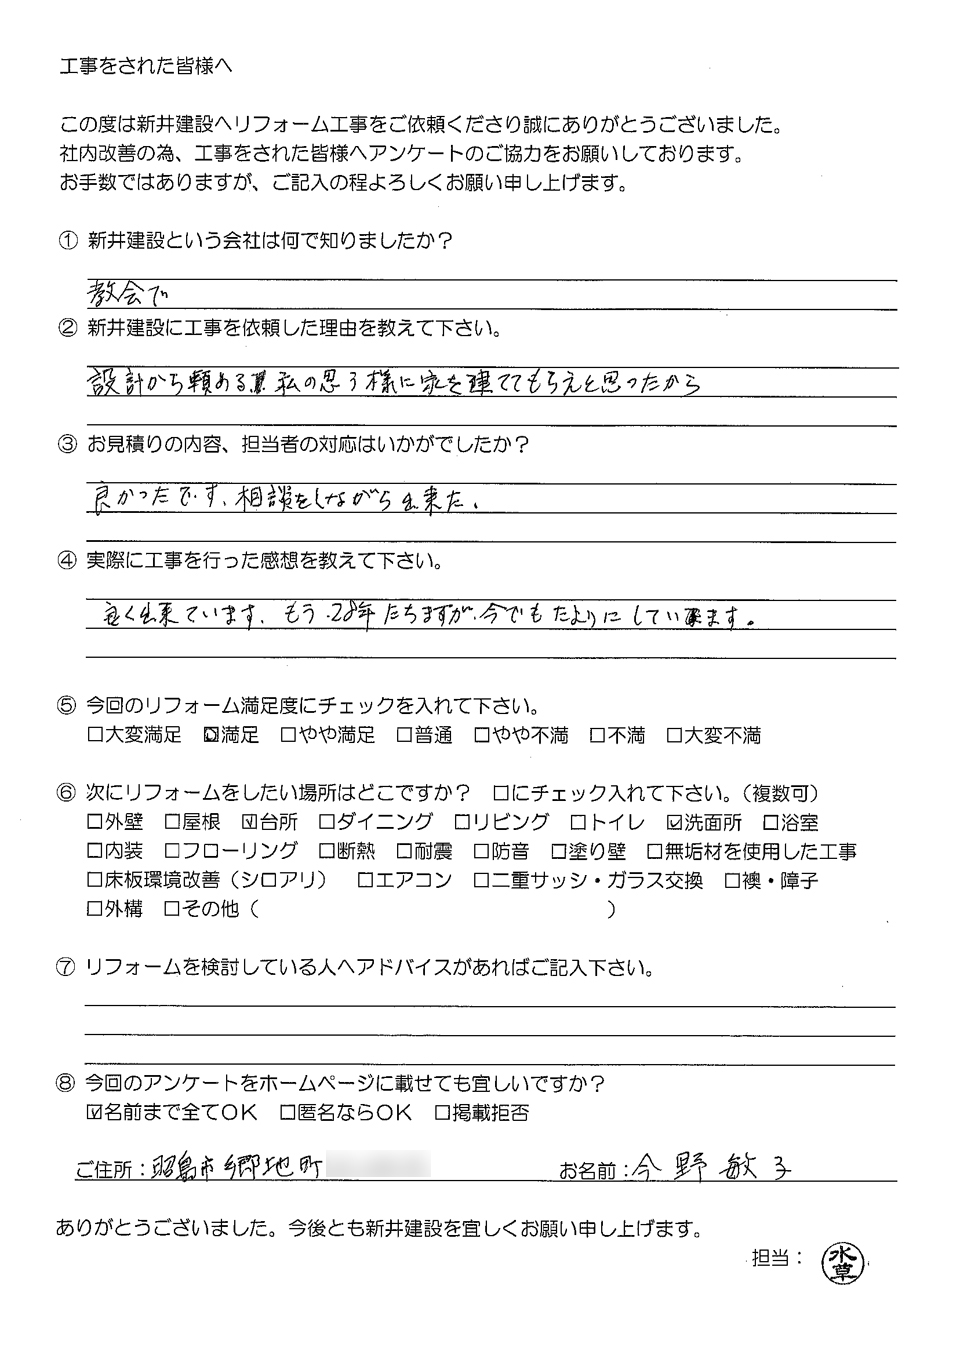 工事をされた皆様へ
この度は新井建設へリフォーム工事をご依頼くださり誠にありがとうございました。
社内改善の為、工事をされた皆様へアンケートのご協力をお願いしております。
お手数ではありますが、ご記入の程よろしくお願い申し上げます。
① 新井建設という会社は何で知りましたか？
教会で
② 新井建設に工事を依頼した理由を教えて下さい。
設計から頼める 私の思う様に家を建ててもらえと思ったから
③ お見積りの内容、担当者の対応はいかがでしたか？
良かったです、相談をしながら出来た。
④ 実際に工事を行った感想を教えて下さい。
良く出来ています、もう28年たちますが、今でもたよりにしています。
⑤ 今回のリフォーム満足度にチェックを入れて下さい。
□大変満足 ☑満足 □やや満足 □普通 □やや不満 □不満 □大変不満
⑥ 次にリフォームをしたい場所はどこですか？ □にチェック入れて下さい。（複数可）
□外壁 □屋根 ☑台所 □ダイニング □リビング □トイレ ☑洗面所 □浴室
□内装 □フローリング □断熱 □耐震 □防音 □塗り壁 □無垢材を使用した工事
□床板環境改善（シロアリ） □エアコン □二重サッシ・ガラス交換 □襖・障子
□外構 □その他（ ）
⑦ リフォームを検討している人へアドバイスがあればご記入下さい。
⑧ 今回のアンケートをホームページに載せても宜しいですか？
☑名前まで全てOK □匿名ならOK □掲載拒否
ご住所：昭島市郷地町 お名前：今野敏子
ありがとうございました。今後とも新井建設を宜しくお願い申し上げます。
担当： 水草